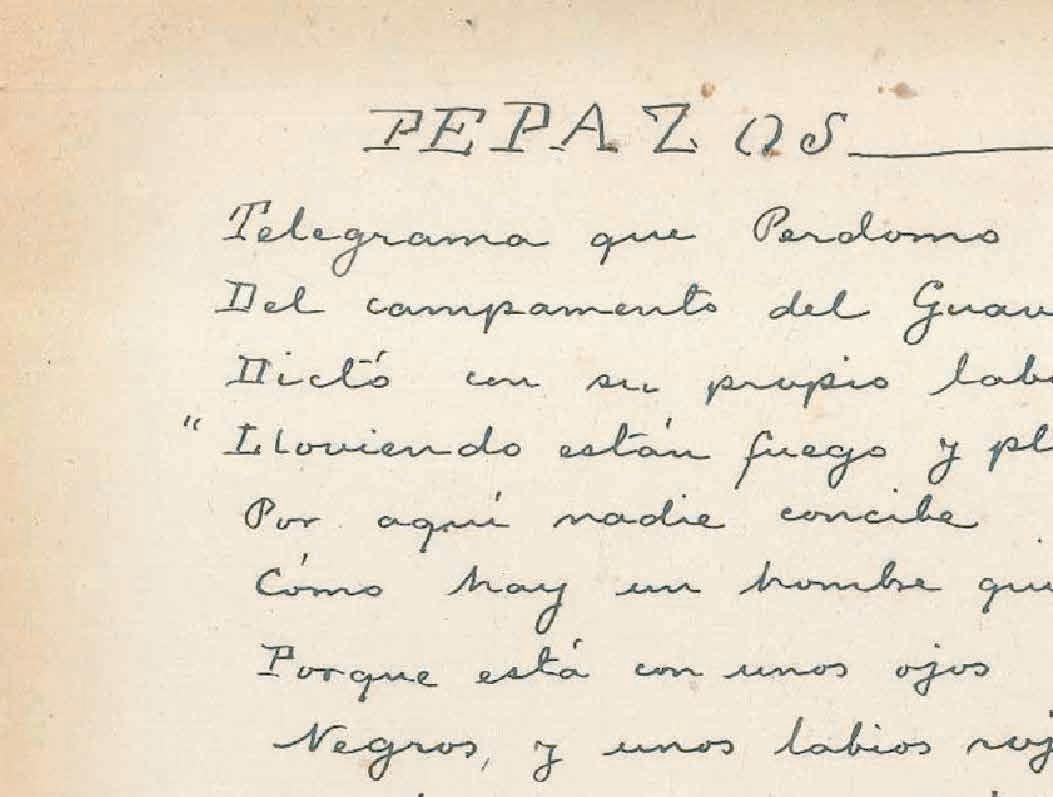 PEPAZOS
Telegrama que Perdomo
Del campamento del
Dictó con su propio
" Lloviendo están fuego y
Por aquí nadie concibe
Cómo hay un hombre
Porque está con unos ojos
Negros, y unos labios